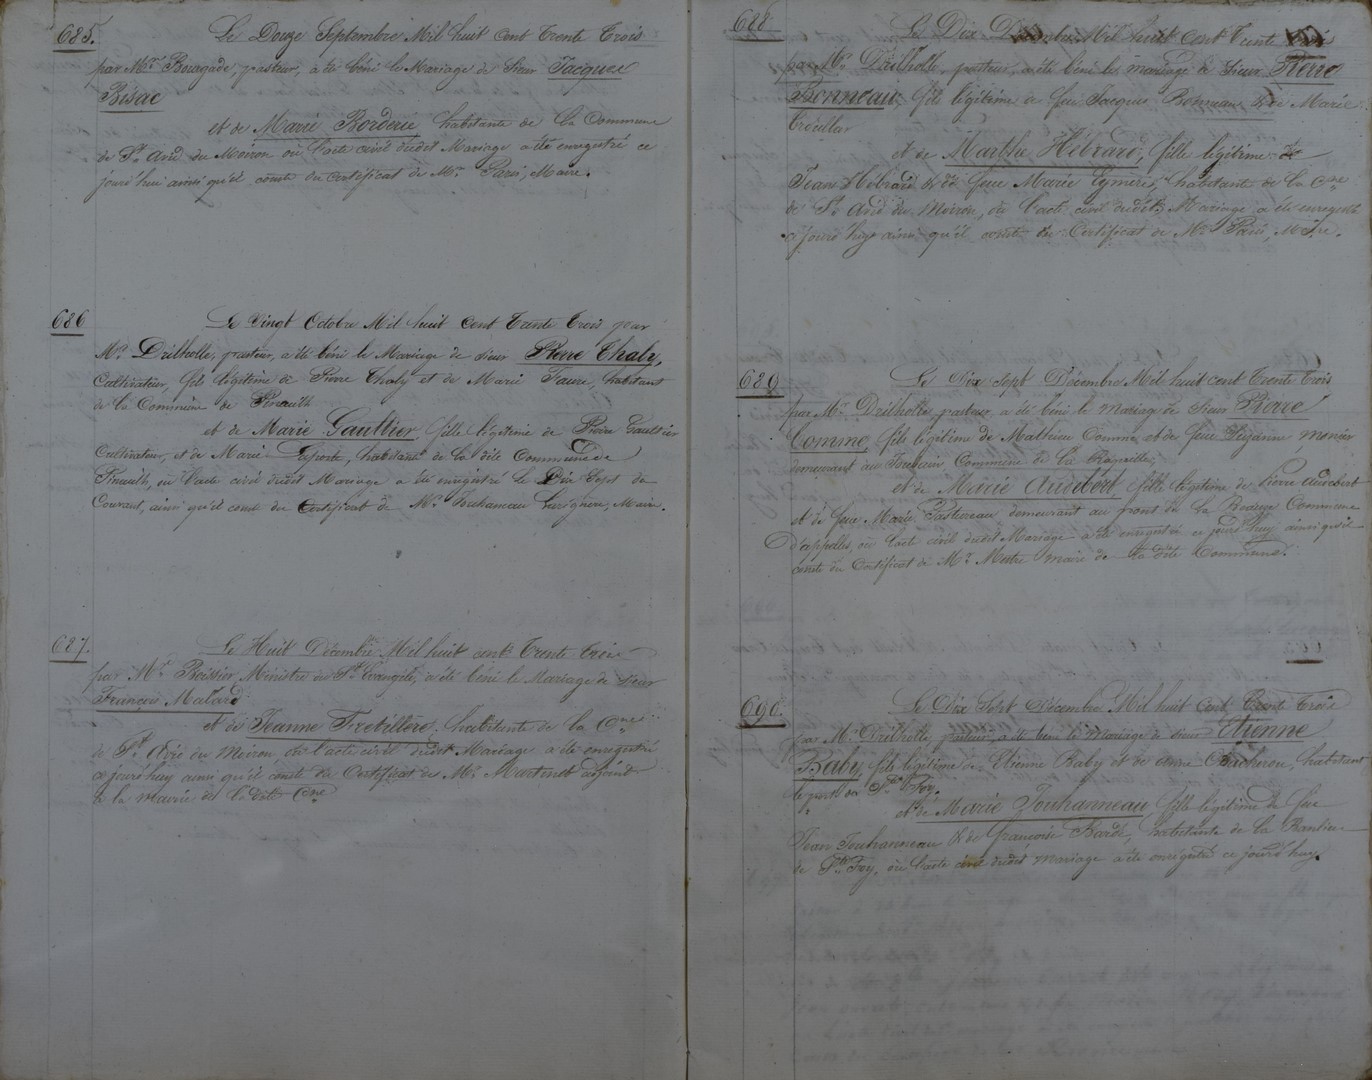 685. Le Douze Septembre Mil huit Cent Trente Trois
par Mr. Bourgade, pasteur, a été béni le Mariage de Sieur Jacques
Bisac
et de Marie Borderie habitante de la Commune
de St. Avid du Moiron où l'acte civil dudit Mariage a été enregistré ce
jourd'huy ainsi qu'il conste du certificat de Mr. Paris, Maire.
686 Le Vingt Octobre Mil huit Cent Trente Trois par
Mr. Drilholle, pasteur, a été béni le Mariage de sieur Pierre Thaly,
Cultivateur, fils légitime de Pierre Thaly et de Marie Faure, habitant
de la Commune de Pineuilh
et de Marie Gaultier fille légitime de Pierre Gaultier
Cultivateur, et de Marie Laporte, habitant de la dite Commune de
Pineuilh, où l'acte civil dudit Mariage a été enregistré le Dix Sept du
Courant, ainsi qu'il conste du Certificat de Mr. Jouhaneau Maire.
687. Le Huit Décembre Mil huit cent Trente Trois
par Mr. Boissier Ministre du St. Evangile, a été béni le Mariage de sieur
François Malard
et de Jeanne Tretillère habitante de la Cne
de St. Avid du Moiron, où l'acte civil dudit Mariage a été enregistré
ce jourd'huy ainsi qu'il conste du Certificat de Mr. Martinet adjoint
à la mairie de la dite Cne
688 Le Dix Décembre Mil huit Cent Trente Trois
par Mr. Drilholle, pasteur, a été béni le mariage de Sieur Pierre
Bonneau, fils légitime de feu Jacques Bonneau & de Marie
et de Marthe Hébrard, fille légitime de
Jean Hébrard & de feue Marie Eymeric, habitante de la Cne
de St. Avid du Moiron, où l'acte civil dudit Mariage a été enregistré
ce jourd'huy ainsi qu'il conste du Certificat de Mr. Paris, Maire.
689 Le Dix Sept Décembre Mil huit cent Trente Trois
par Mr. Drilholle pasteur, a été béni le Mariage de Sieur Pierre
Comme fils légitime de Mathieu Comme et de feue Suzanne Monier
demeurant au Commune de
et de Marie Audebert fille légitime de Pierre Audebert
et de feue Marie Pastureau demeurant au front de la Commune
d'appelles, où l'acte civil dudit Mariage a été enregistré ce jourd'huy ainsi qu'il
conste du Certificat de Mr. Mestre maire de la dite Commune.
690. Le Dix Sept Décembre Mil huit Cent Trente Trois
par Mr. Drilholle, pasteur, a été béni le Mariage de sieur Etienne
Baby, fils légitime de Etienne Baby et de Anne habitant
le port de Ste. Foy.
et de Marie Jouhanneau fille légitime de feu
Jean Jouhanneau & de françoise Barde, habitante de la Banlieue
de Ste. Foy, où l'acte civil dudit mariage a été enrégistré ce jourd'huy.